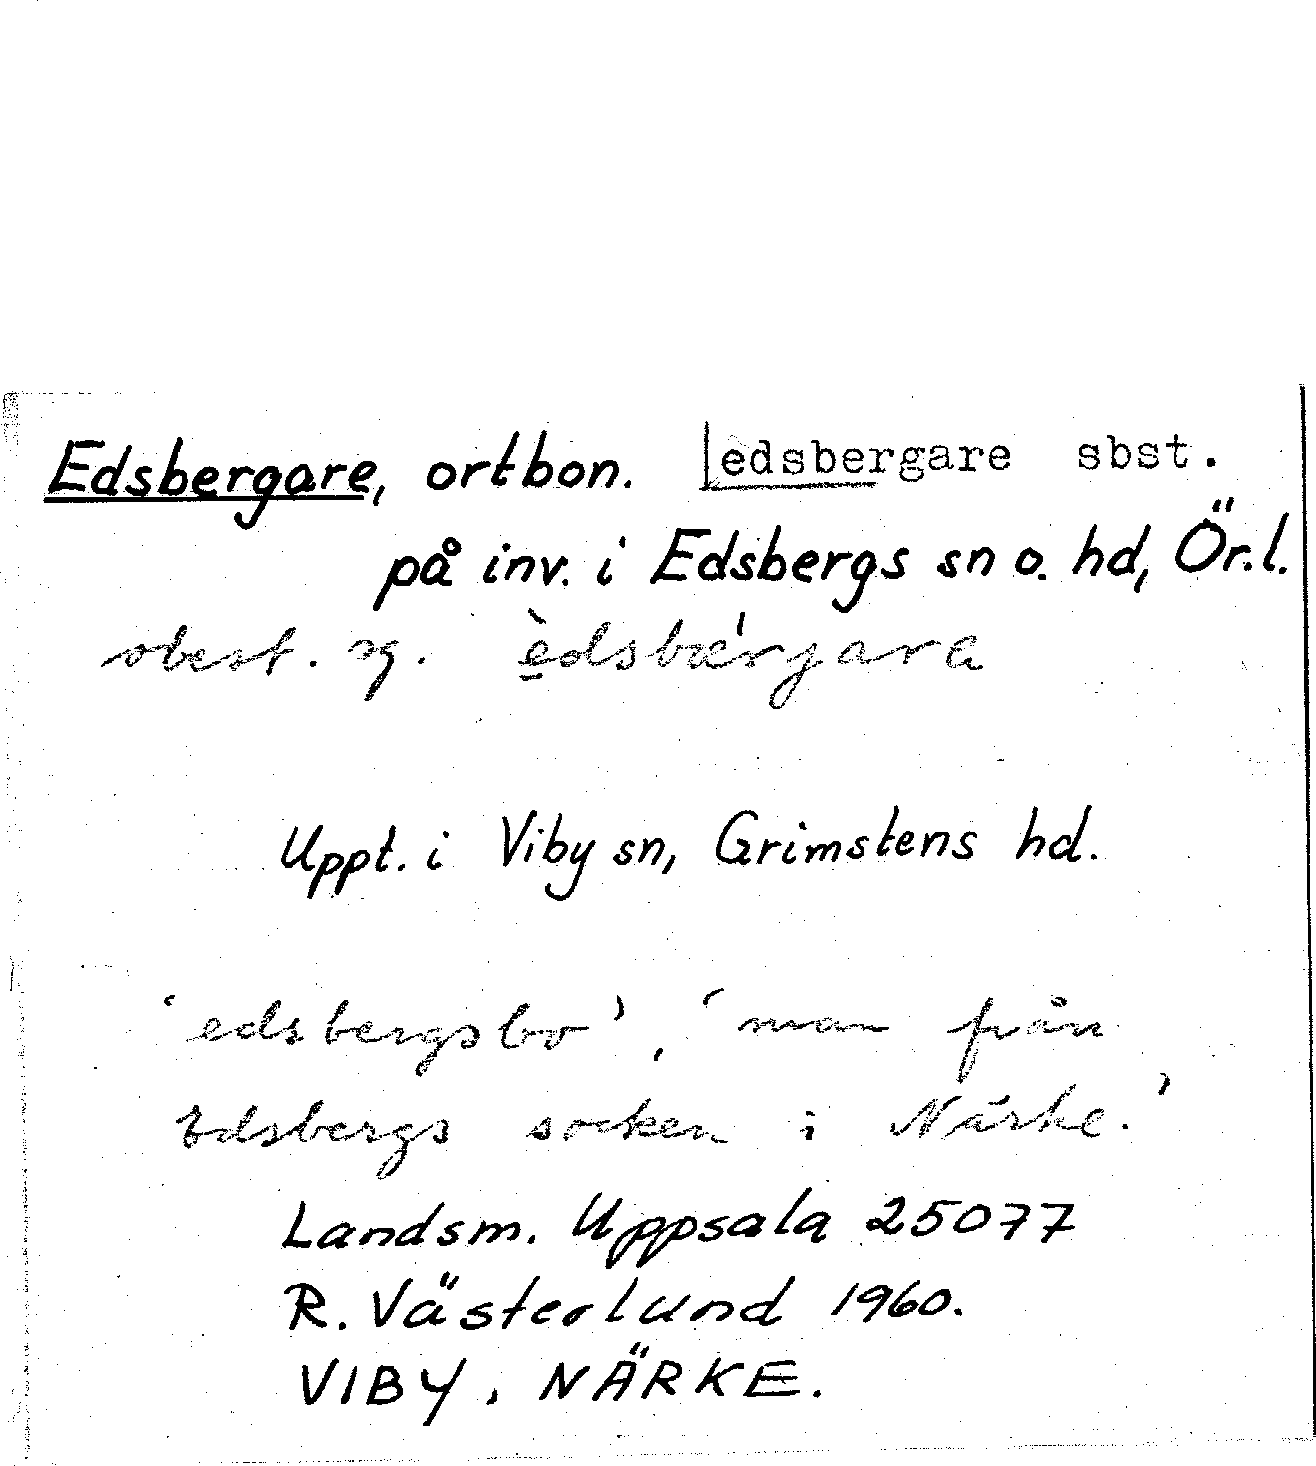 Edsbergare, ortbon. edsbergare sbst.
på inv. i Edsbergs sn o. hd, Ör.l.
obest. sg. èdsbær̍jara
Uppt. i Viby sn, Grimstens hd.
'edsbergsbo', 'man från
Edsbergs socken i Närke.'
Landsm. Uppsala 25077
R. Västerlund 1960.
VIBY, NÄRKE.